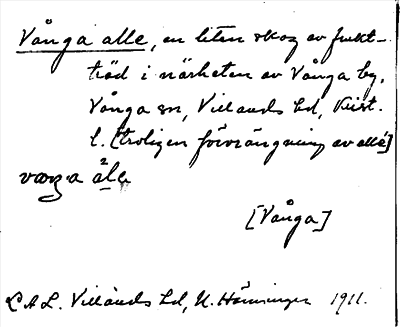 Vånga alle, en liten skog av frukt-
träd i närheten av Vånga by,
Vånga sn, Villands hd, Krist.
l. [troligen förvrängning av allé]
våŋa ale
[Vånga]
L A L. Villands hd, N. Hänninger 1911.